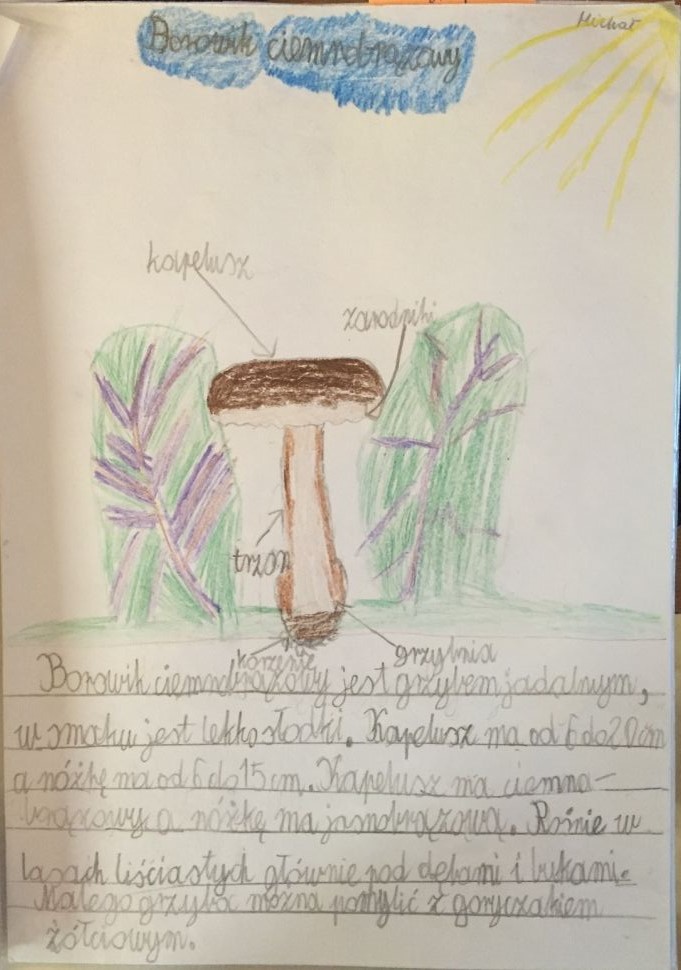 Borowik ciemnobrązowy
Michał
kapelusz
zarodniki
trzon
korzenie
grzybnia
Borowik ciemnobrązowy jest grzybem jadalnym,
w smaku jest lekko słodki. Kapelusz ma od 6 do 20 cm
a nóżkę ma od 6 do 15 cm. Kapelusz ma ciemno-
brązowy a nóżkę ma jasnobrązową. Rośnie w
lasach liściastych głównie pod dębami i bukami.
Małego grzyba można pomylić z goryczakiem
żółciowym.